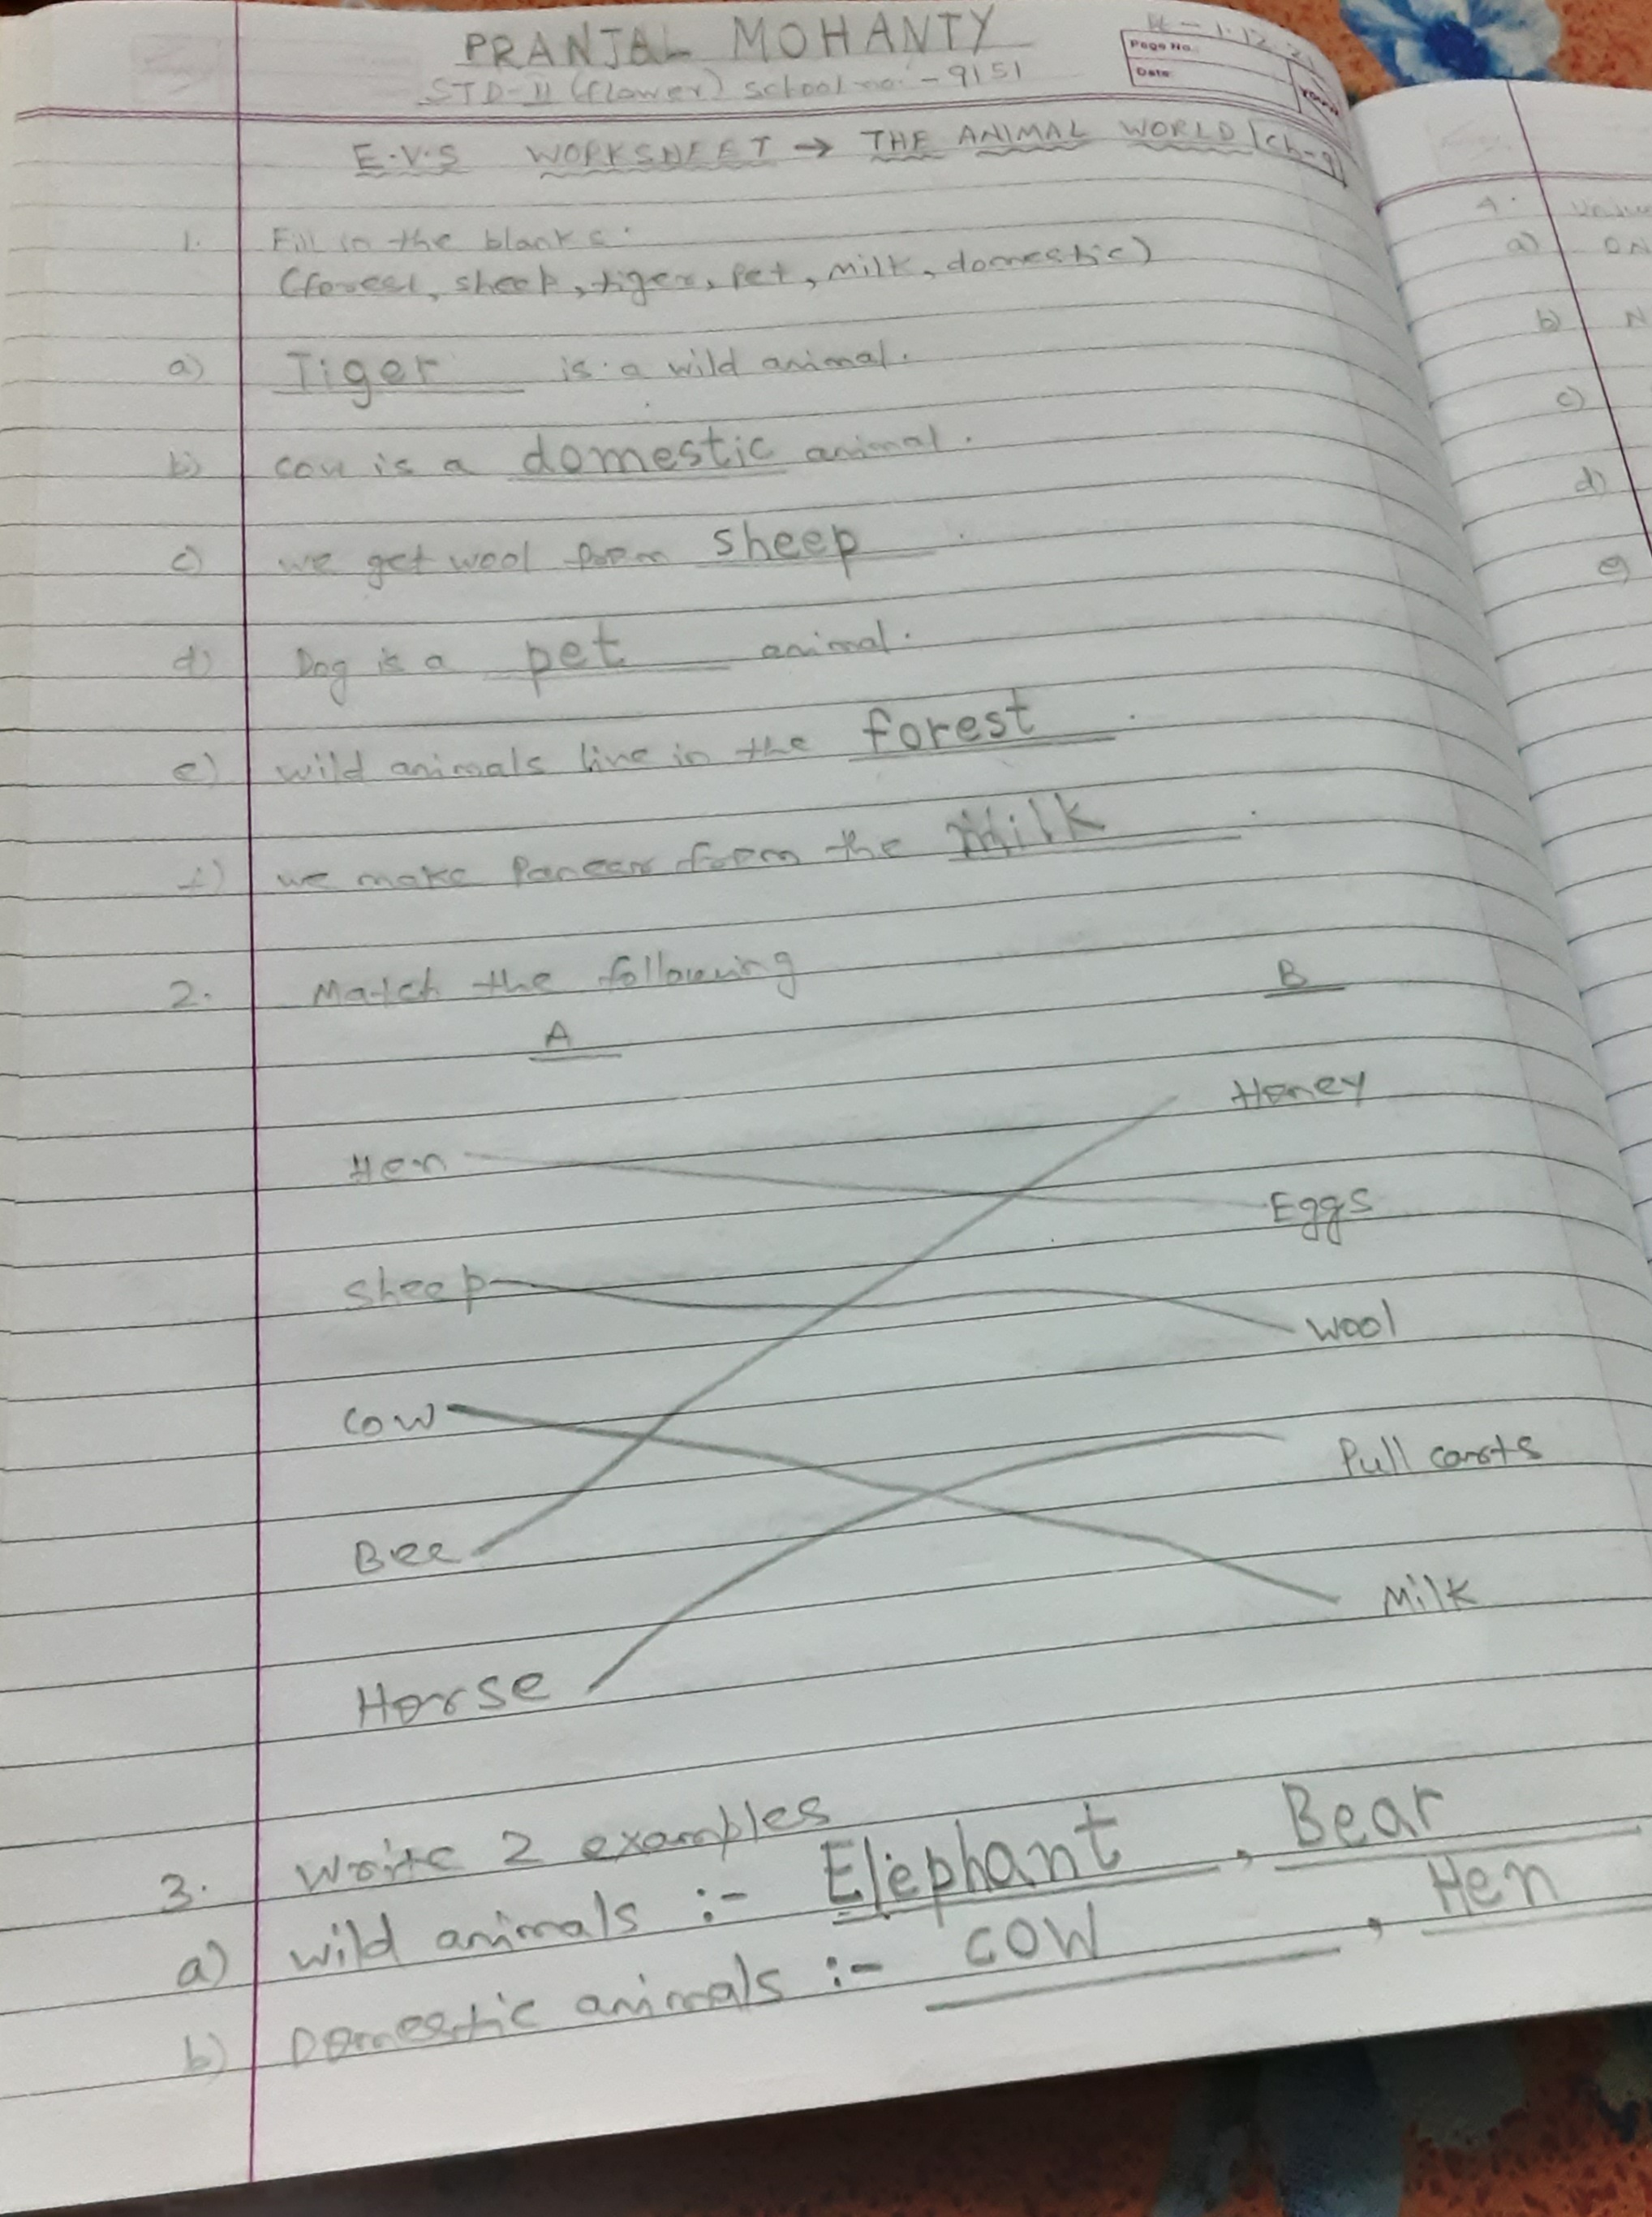 PRANJAL MOHANTY
STD-II (flower) School no:-9151
Page No.:
Date:
E.V.S WORKSHEET → THE ANIMAL WORLD (ch-9)
1. Fill in the blanks.
(forest, sheep, tiger, pet, milk, domestic)
a) Tiger is a wild animal.
b) cow is a domestic animal.
c) we get wool from sheep.
d) Dog is a pet animal.
e) wild animals live in the forest.
f) we make Paneer from the Milk.
2. Match the following
A B
Honey
Hen
Eggs
Sheep
Wool
Cow
Pull carts
Bee
Milk
Horse
3. Write 2 examples
a) wild animals :- Elephant, Bear
b) Domestic animals :- cow, Hen
4.
a) ON
b) N
c)
d)
e)